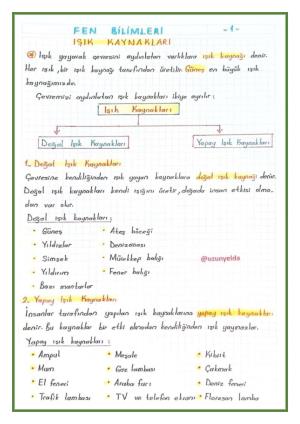 FEN BİLİMLERİ -1-
IŞIK KAYNAKLARI
Işık yayarak çevresini aydınlatan varlıklara ışık kaynağı denir.
Her ışık, bir ışık kaynağı tarafından üretilir. Güneş en büyük ışık
kaynağımızdır.
Çevremizi aydınlatan ışık kaynakları ikiye ayrılır:
Işık Kaynakları
Doğal Işık Kaynakları Yapay Işık Kaynakları
1- Doğal Işık Kaynakları
Çevresine kendiliğinden ışık yayan kaynaklara doğal ışık kaynağı denir.
Doğal ışık kaynakları kendi ışığını üretir, doğada insan etkisi olma-
dan var olur.
Doğal ışık kaynakları:
• Güneş • Ateş böceği
• Yıldızlar • Denizanası
• Şimşek • Mürekkep balığı @uzunyelda
• Yıldırım • Fener balığı
• Bazı mantarlar
2. Yapay Işık Kaynakları
İnsanlar tarafından yapılan ışık kaynaklarına yapay ışık kaynakları
denir. Bu kaynaklar bir etki olmadan kendiliğinden ışık yaymazlar.
Yapay ışık kaynakları:
• Ampul • Meşale • Kibrit
• Mum • Gaz lambası • Çakmak
• El feneri • Araba farı • Deniz feneri
• Trafik lambası • TV ve telefon ekranı • Floresan lamba